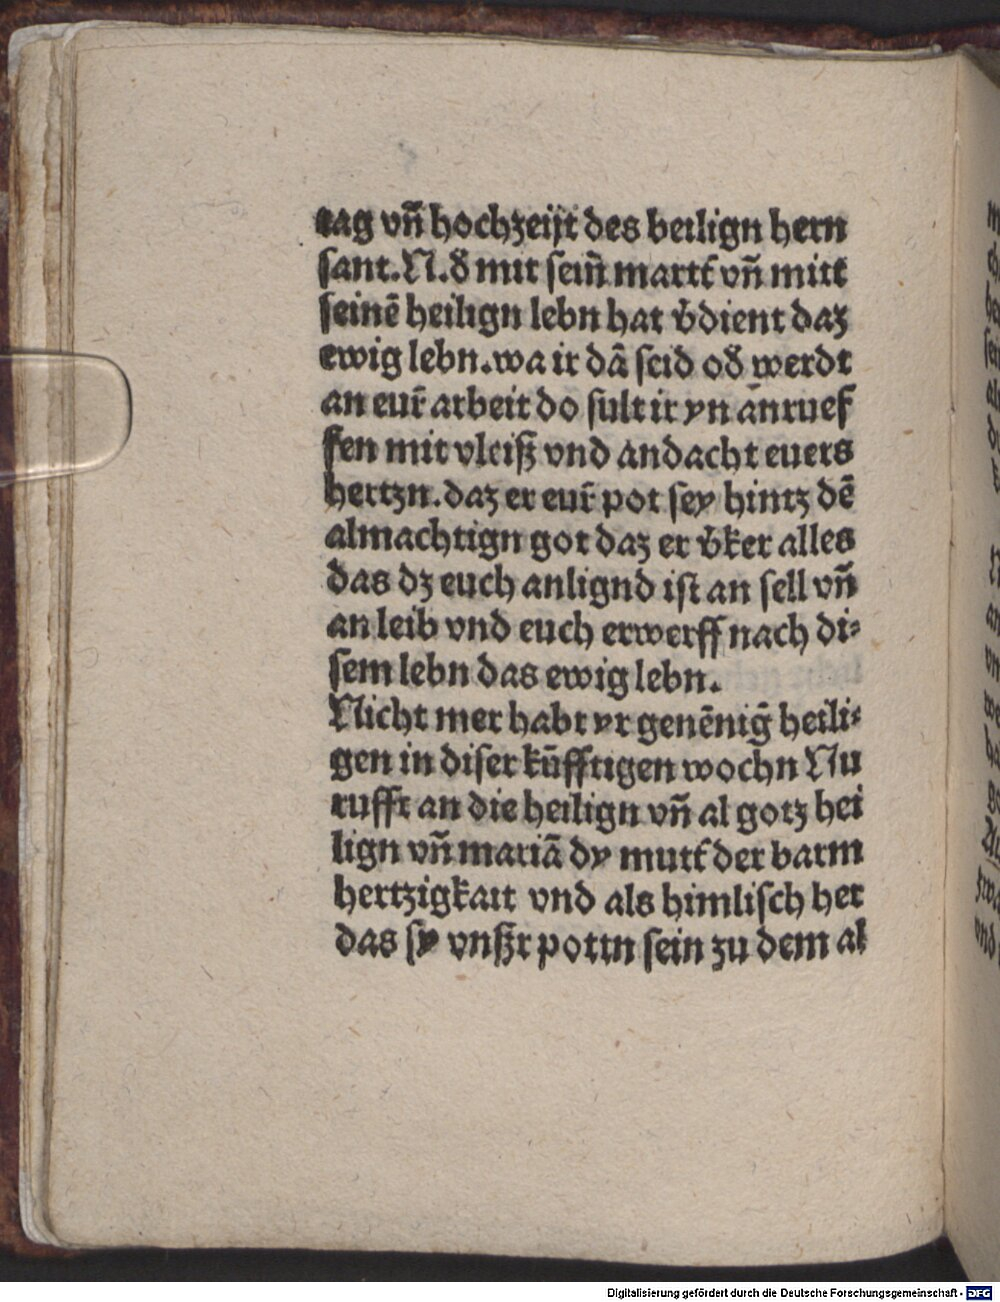 tag vn̄ hochzeijt des heilign hern
sant.N.d̕ mit seim̄ martt̕ vn̄ mitt
seinē heilign lebn hat v̕dient daz
ewig lebn.wa ir dā seid od̕ werdt
an eur̄ arbeit do sult ir yn anruef
fen mit vleiß vnd andacht euers
hertzn.daz er eur̄ pot sey hintz dē
almachtign got daz er v̕ker alles
das dz euch anlignd ist an sell vn̄
an leib vnd euch erwerff nach di⸗
sem lebn das ewig lebn.
Nicht mer habt yr genēniḡ heili⸗
gen in diser kūfftigen wochn Nu
rufft an die heilign vn̄ al gotz hei
lign vn̄ mariā dy mutt̕ der barm
hertzigkait vnd als himlisch her
das sy vnßr pottn sein zu dem al
Digitalisierung gefördert durch die Deutsche Forschungsgemeinschaft - DFG